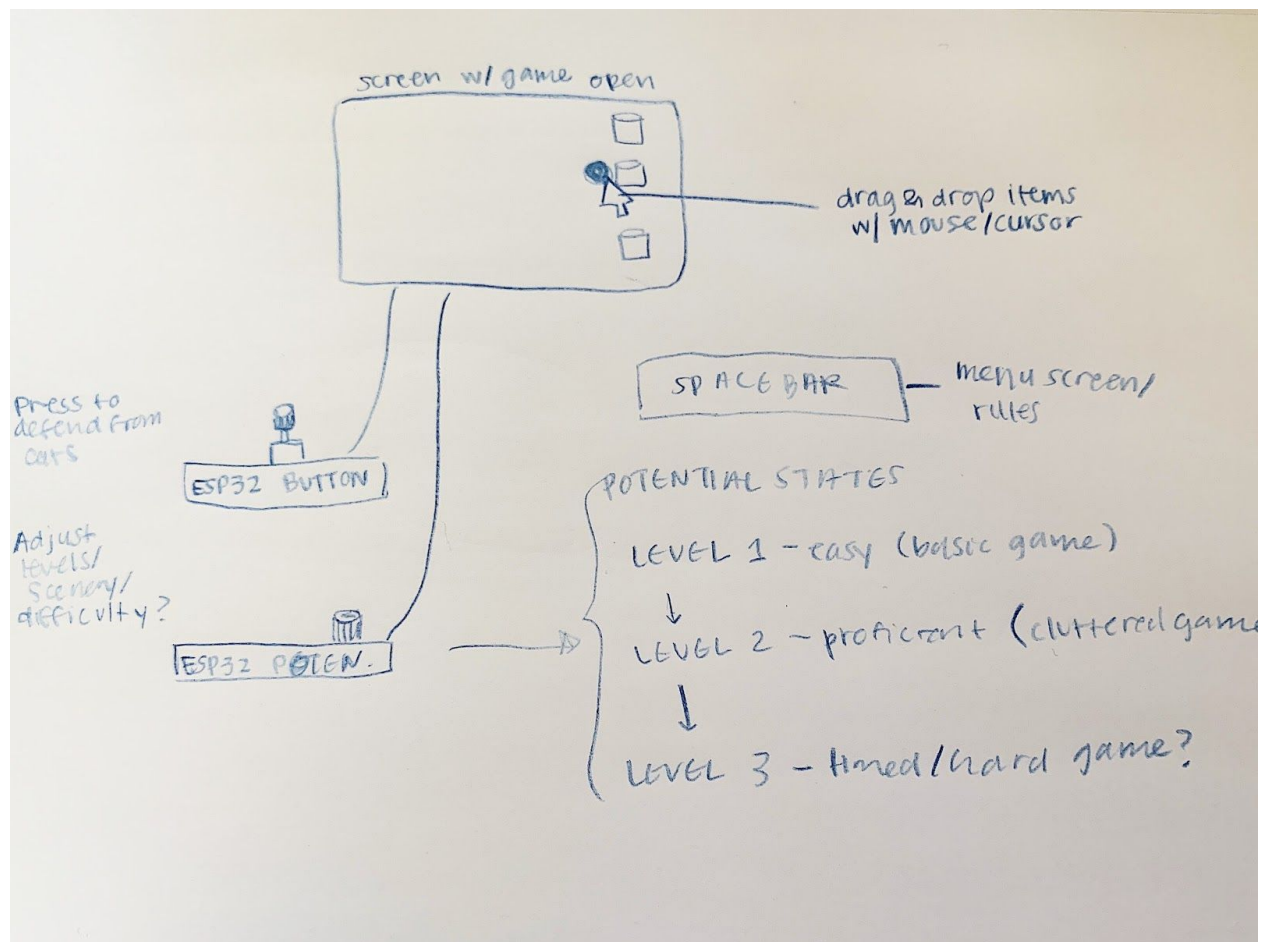 screen w/ game open
drag & drop items
w/ mouse/cursor
SPACEBAR
menu screen/
rules
Press to
defend from
cats
ESP32 BUTTON
POTENTIAL STATES
Adjust
levels/
scenery/
difficulty?
ESP32 POTEN.
LEVEL 1 - easy (basic game)
LEVEL 2 - proficient (cluttered game
LEVEL 3 - timed/hard game?